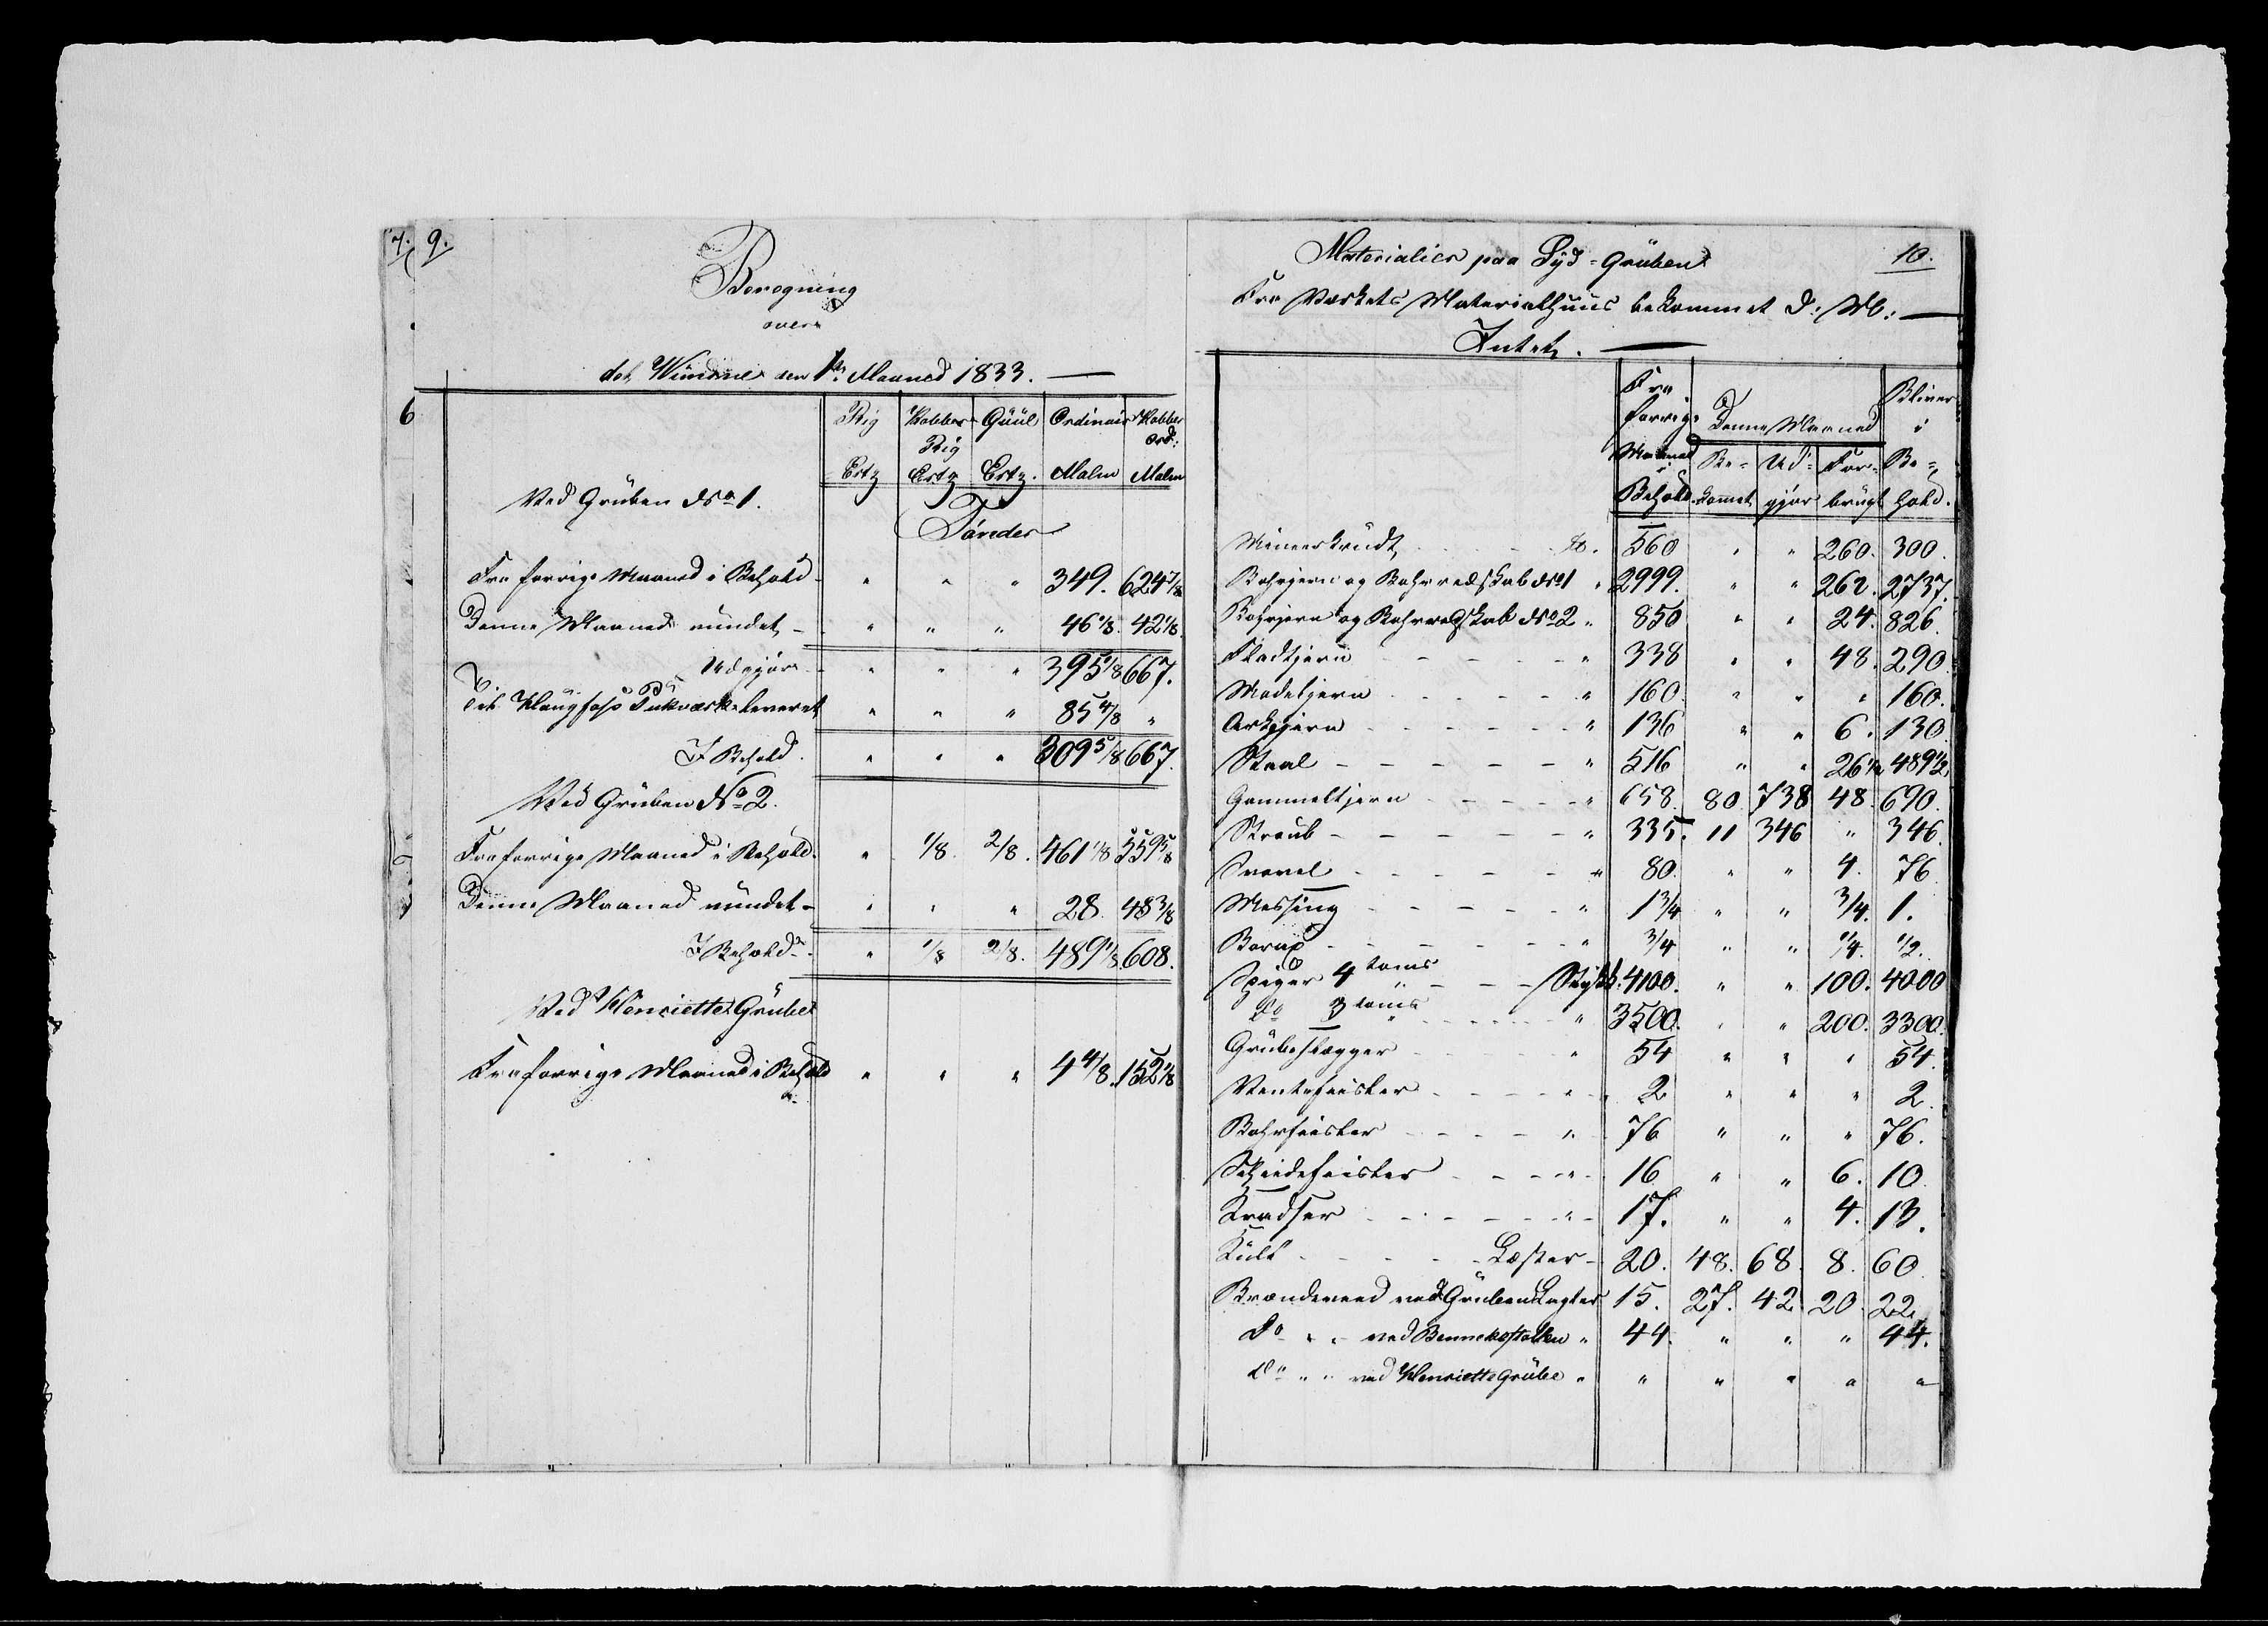 7. 9.
Beregning
over
det Wundne den 1te Maaned 1833. —
6
Rig Kobber Guul Ordinair Kobber
Rig ord:
Ertz Ertz Ertz. Malm Malm
Ved Gruben No 1.
Tønder
Fra forrige Maaned i Behold - " " " 349. 624 7/8
Denne Maaned vundet - " " " 46 1/8. 42 1/8.
Udgjør - " " " 395 1/8 667.
Til Klingfoss Pukværk leveret " " " 85 4/8 "
I Behold. " " " 309 5/8 667.
Ved Gruben No 2.
Fra forrige Maaned i Behold. " 1/8. 2/8. 461 1/8 559 5/8
Denne Maaned vundet - " " " 28. 48 3/8
I Behold - " 1/8 2/8. 489 1/8 608.
Ved Henriette Grube
Fra forrige Maaned i Behold " " " 4 4/8. 152 1/8
Materialier paa Syd-Gruben 10.
Fra Værkets Materialhuus bekommet d: M: —
Intet. —
Fra Bliver
forrige Denne Maaned i
Maaned Be- Ud- For- Be-
i
Behold. kommet gjør brugt hold.
Minekrudt - - - ℔. 560 " " 260. 300.
Bohrjern og Bohrredskab No 1 " 2999. " " 262. 2737.
Bohrjern og Bohrredskab No 2 " 850 " " 24. 826.
Fladtjern - - - - " 338 " " 48. 290
Modeljern - - - - " 160. " " " 160.
Arkjern - - - - " 136 " " 6. 130
Staal - - - - - " 516 " " 26 1/2 489 1/2
Gammeltjern - - - - " 658. 80 738 48. 690.
Straub - - - - - " 335. 11 346 " 346.
Svovel - - - - - " 80. " " 4. 76
Messing - - - - " 1 3/4 " " 3/4. 1.
Borax - - - - - " 3/4 " " 1/4. 1/2.
Spiger 4 toms - - Stykk. 4100. " " 100. 4000
do 3 toms - - - " 3500. " " 200. 3300.
Grubeslægger - - - " 54 " " " 54.
Ventefeistler - - - " 2 " " " 2.
Bohrfeistler - - - " 76 " " " 76.
Scheidefeistler - - - " 16 " " 6. 10
Kradser - - - - " 17. " " 4. 13.
Kull - - - Læster - 20. 48. 68. 8. 60
Brændeveed ved Gruben Lagter 15. 27. 42 20. 22.
do " " ved Bennekostollen " 44. " " " 44.
do " " ved Henriette Grube " " " " " "